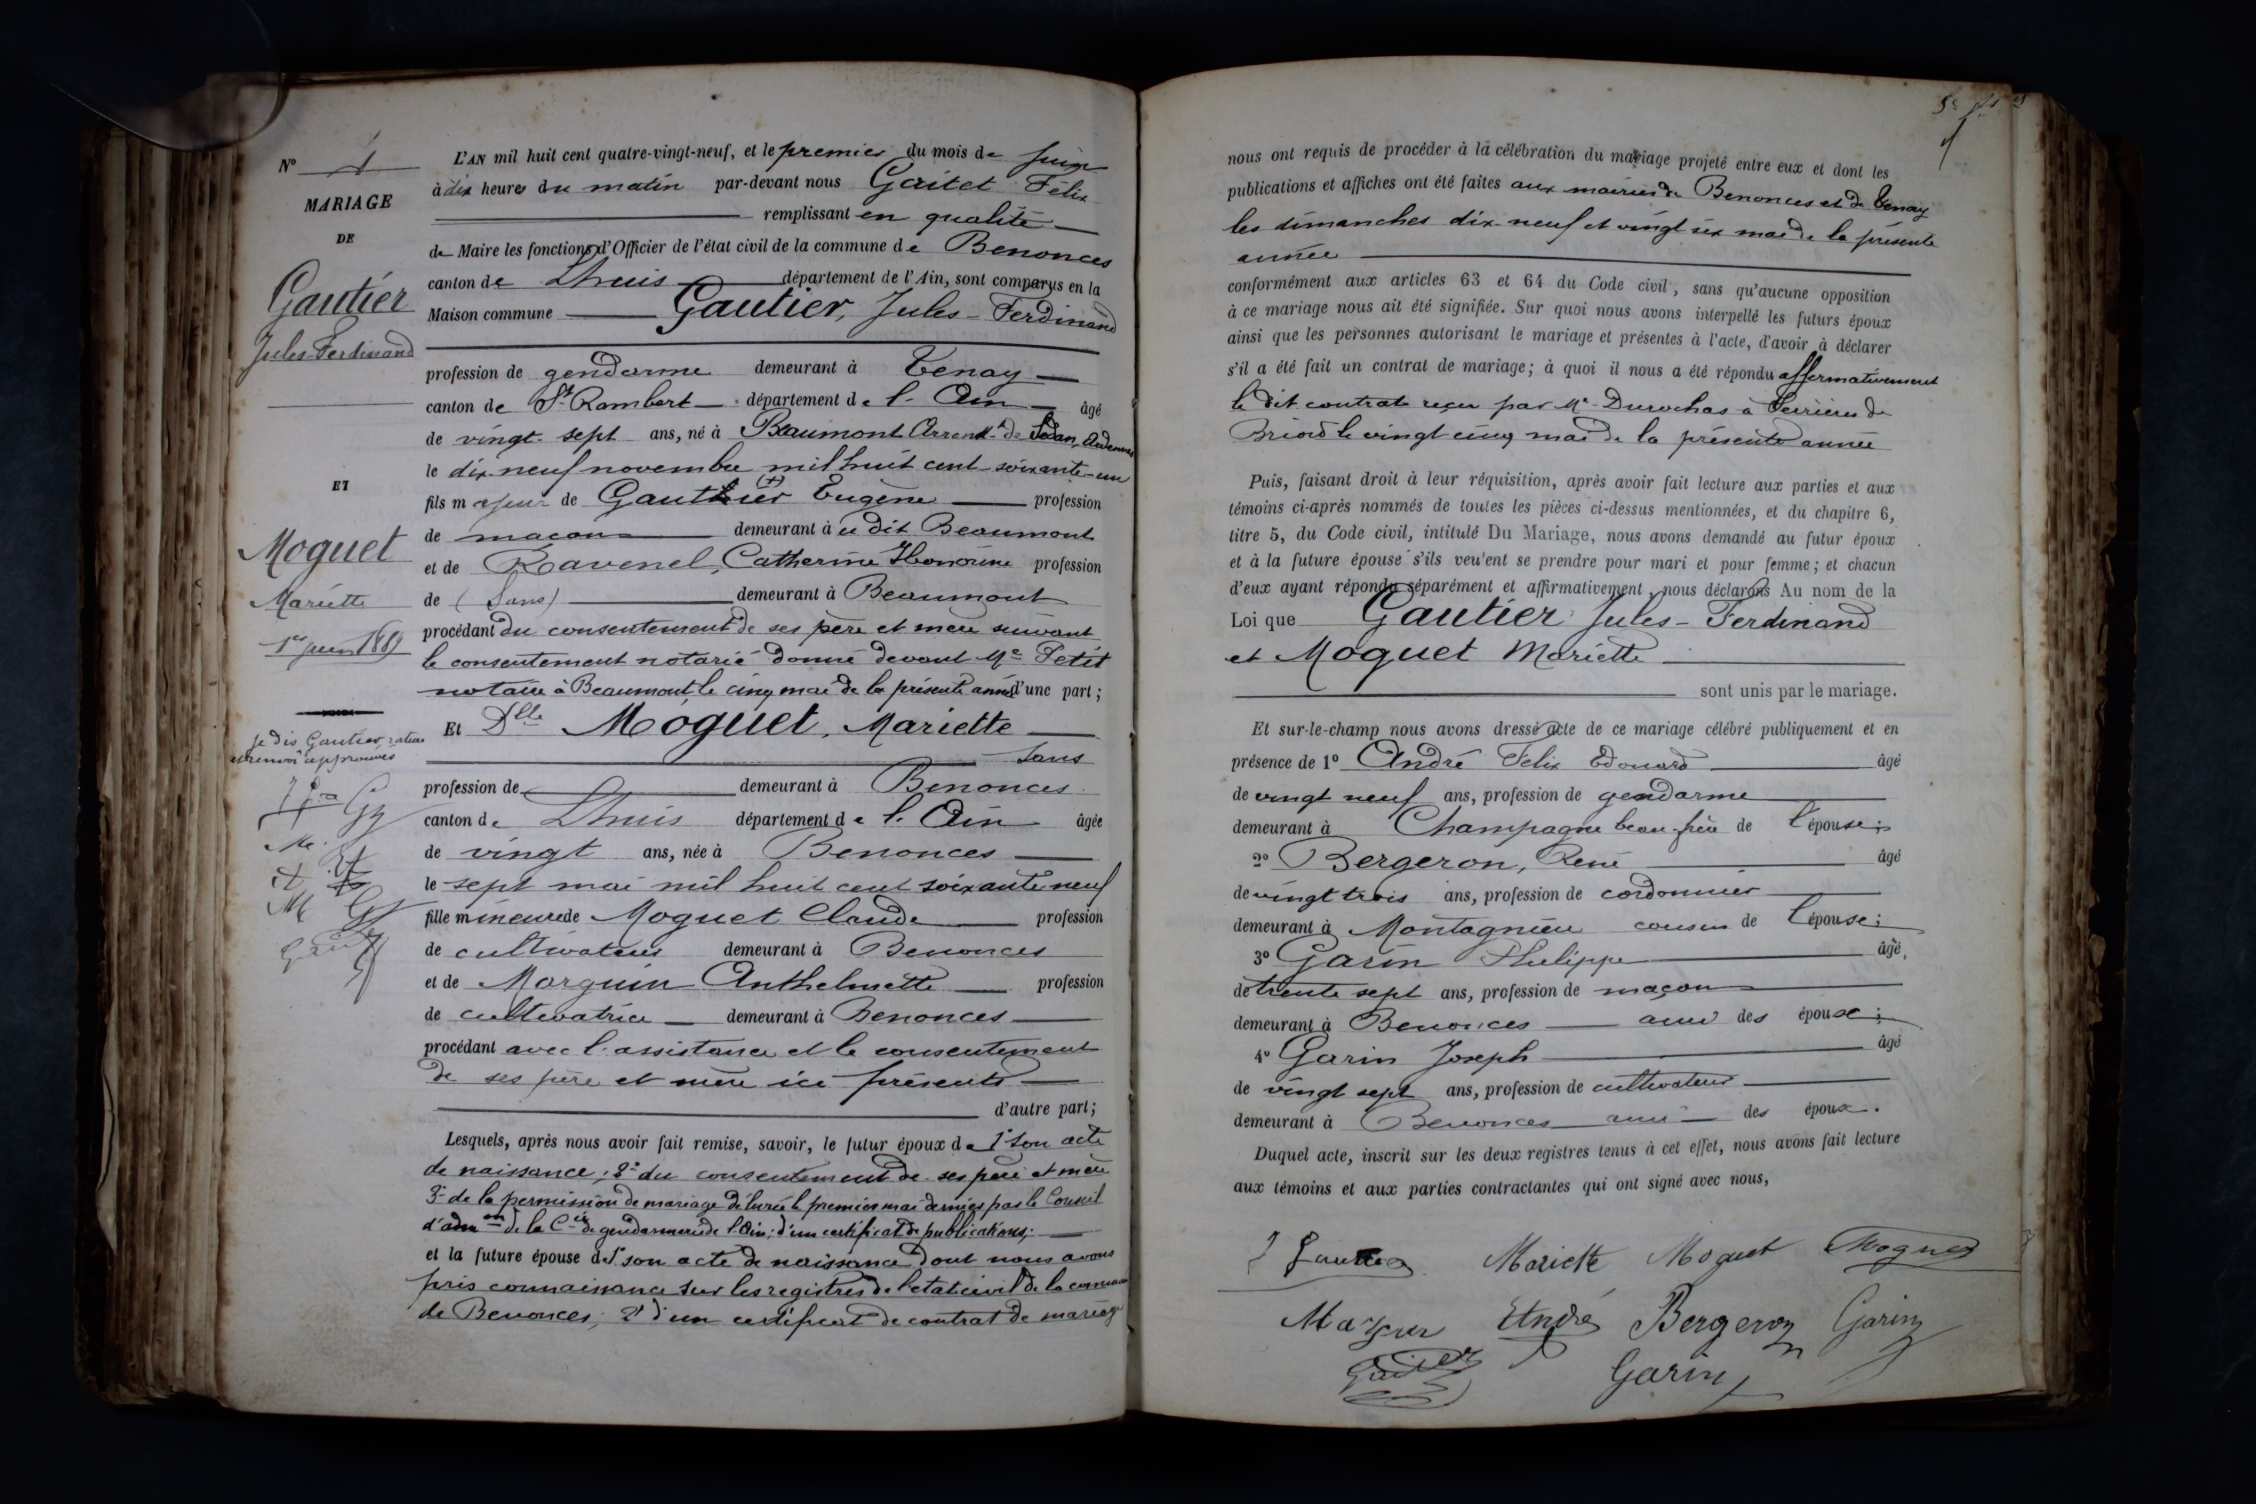 N° 1
MARIAGE
DE
Gautier
Jules Ferdinand
ET
Moquet
Mariette
1er juin 1889
je dis Gautier, rature
et renvoi approuvés
L'AN mil huit cent quatre-vingt-neuf, et le premier du mois de juin
à dix heures du matin par-devant nous Gaitet Félix
remplissant en qualité
de Maire les fonctions d'Officier de l'état civil de la commune de Benonces
canton de Lhuis département de l'Ain, sont comparus en la
Maison commune Gautier, Jules-Ferdinand
profession de gendarme demeurant à Tenay
canton de St Rambert département de l'Ain âgé
de vingt-sept ans, né à Beaumont Arrondt de Sedan, Ardennes
le dix-neuf novembre mil huit cent soixante-un
fils majeur de Gauthier (+) Eugène profession
de maçon demeurant à u dit Beaumont
et de Ravenel, Catherine Honorine profession
de (Sans) demeurant à Beaumont
procédant du consentement de ses père et mère suivant
le consentement notarié donné devant Me Petit
notaire à Beaumont le cinq mai de la présente année d'une part;
Et Dlle Moquet, Mariette
Sans
profession de demeurant à Benonces
canton de Lhuis département de l'Ain âgée
de vingt ans, née à Benonces
le sept mai mil huit cent soixante neuf
fille mineure de Moquet Claude profession
de cultivateur demeurant à Benonces
et de Marguin Anthelmette profession
de cultivatrice demeurant à Benonces
procédant avec l'assistance et le consentement
de ses père et mère ici présents
d'autre part;
Lesquels, après nous avoir fait remise, savoir, le futur époux de 1° son acte
de naissance; 2° du consentement de ses père et mère
3° de la permission de mariage délivrée le premier mai dernier par le Conseil
d'admon de la Cie de gendarmerie de l'Ain; d'un certificat de publications;
et la future épouse de 1° son acte de naissance dont nous avons
pris connaissance sur les registres de l'état civil de la commune
de Benonces; 2° d'un certificat de contrat de mariage
nous ont requis de procéder à la célébration du mariage projeté entre eux et dont les
publications et affiches ont été faites aux mairies de Benonces et de Tenay
les dimanches dix-neuf et vingt six mai de la présente
année
conformément aux articles 63 et 64 du Code civil, sans qu'aucune opposition
à ce mariage nous ait été signifiée. Sur quoi nous avons interpellé les futurs époux
ainsi que les personnes autorisant le mariage et présentes à l'acte, d'avoir à déclarer
s'il a été fait un contrat de mariage; à quoi il nous a été répondu affirmativement
le dit contrat reçu par Me Durochas à Serrières de
Briord le vingt cinq mai de la présente année
Puis, faisant droit à leur réquisition, après avoir fait lecture aux parties et aux
témoins ci-après nommés de toutes les pièces ci-dessus mentionnées, et du chapitre 6,
titre 5, du Code civil, intitulé Du Mariage, nous avons demandé au futur époux
et à la future épouse s'ils veulent se prendre pour mari et pour femme; et chacun
d'eux ayant répondu séparément et affirmativement, nous déclarons Au nom de la
Loi que Gautier Jules-Ferdinand
et Moquet Mariette
sont unis par le mariage.
Et sur-le-champ nous avons dressé acte de ce mariage célébré publiquement et en
présence de 1° André Félix Edouard âgé
de vingt neuf ans, profession de gendarme
demeurant à Champagne beau-frère de l'épouse;
2° Bergeron, René âgé
de vingt trois ans, profession de cordonnier
demeurant à Montagnieu cousin de l'épouse;
3° Garin Philippe âgé,
de trente sept ans, profession de maçon
demeurant à Benonces ami des épouse;
4° Garin Joseph âgé
de vingt sept ans, profession de cultivateur
demeurant à Benonces ami des époux.
Duquel acte, inscrit sur les deux registres tenus à cet effet, nous avons fait lecture
aux témoins et aux parties contractantes qui ont signé avec nous,
J Gautier Mariette Moquet Moquet
Marguin André Bergeron Garin
Gaitet Garin